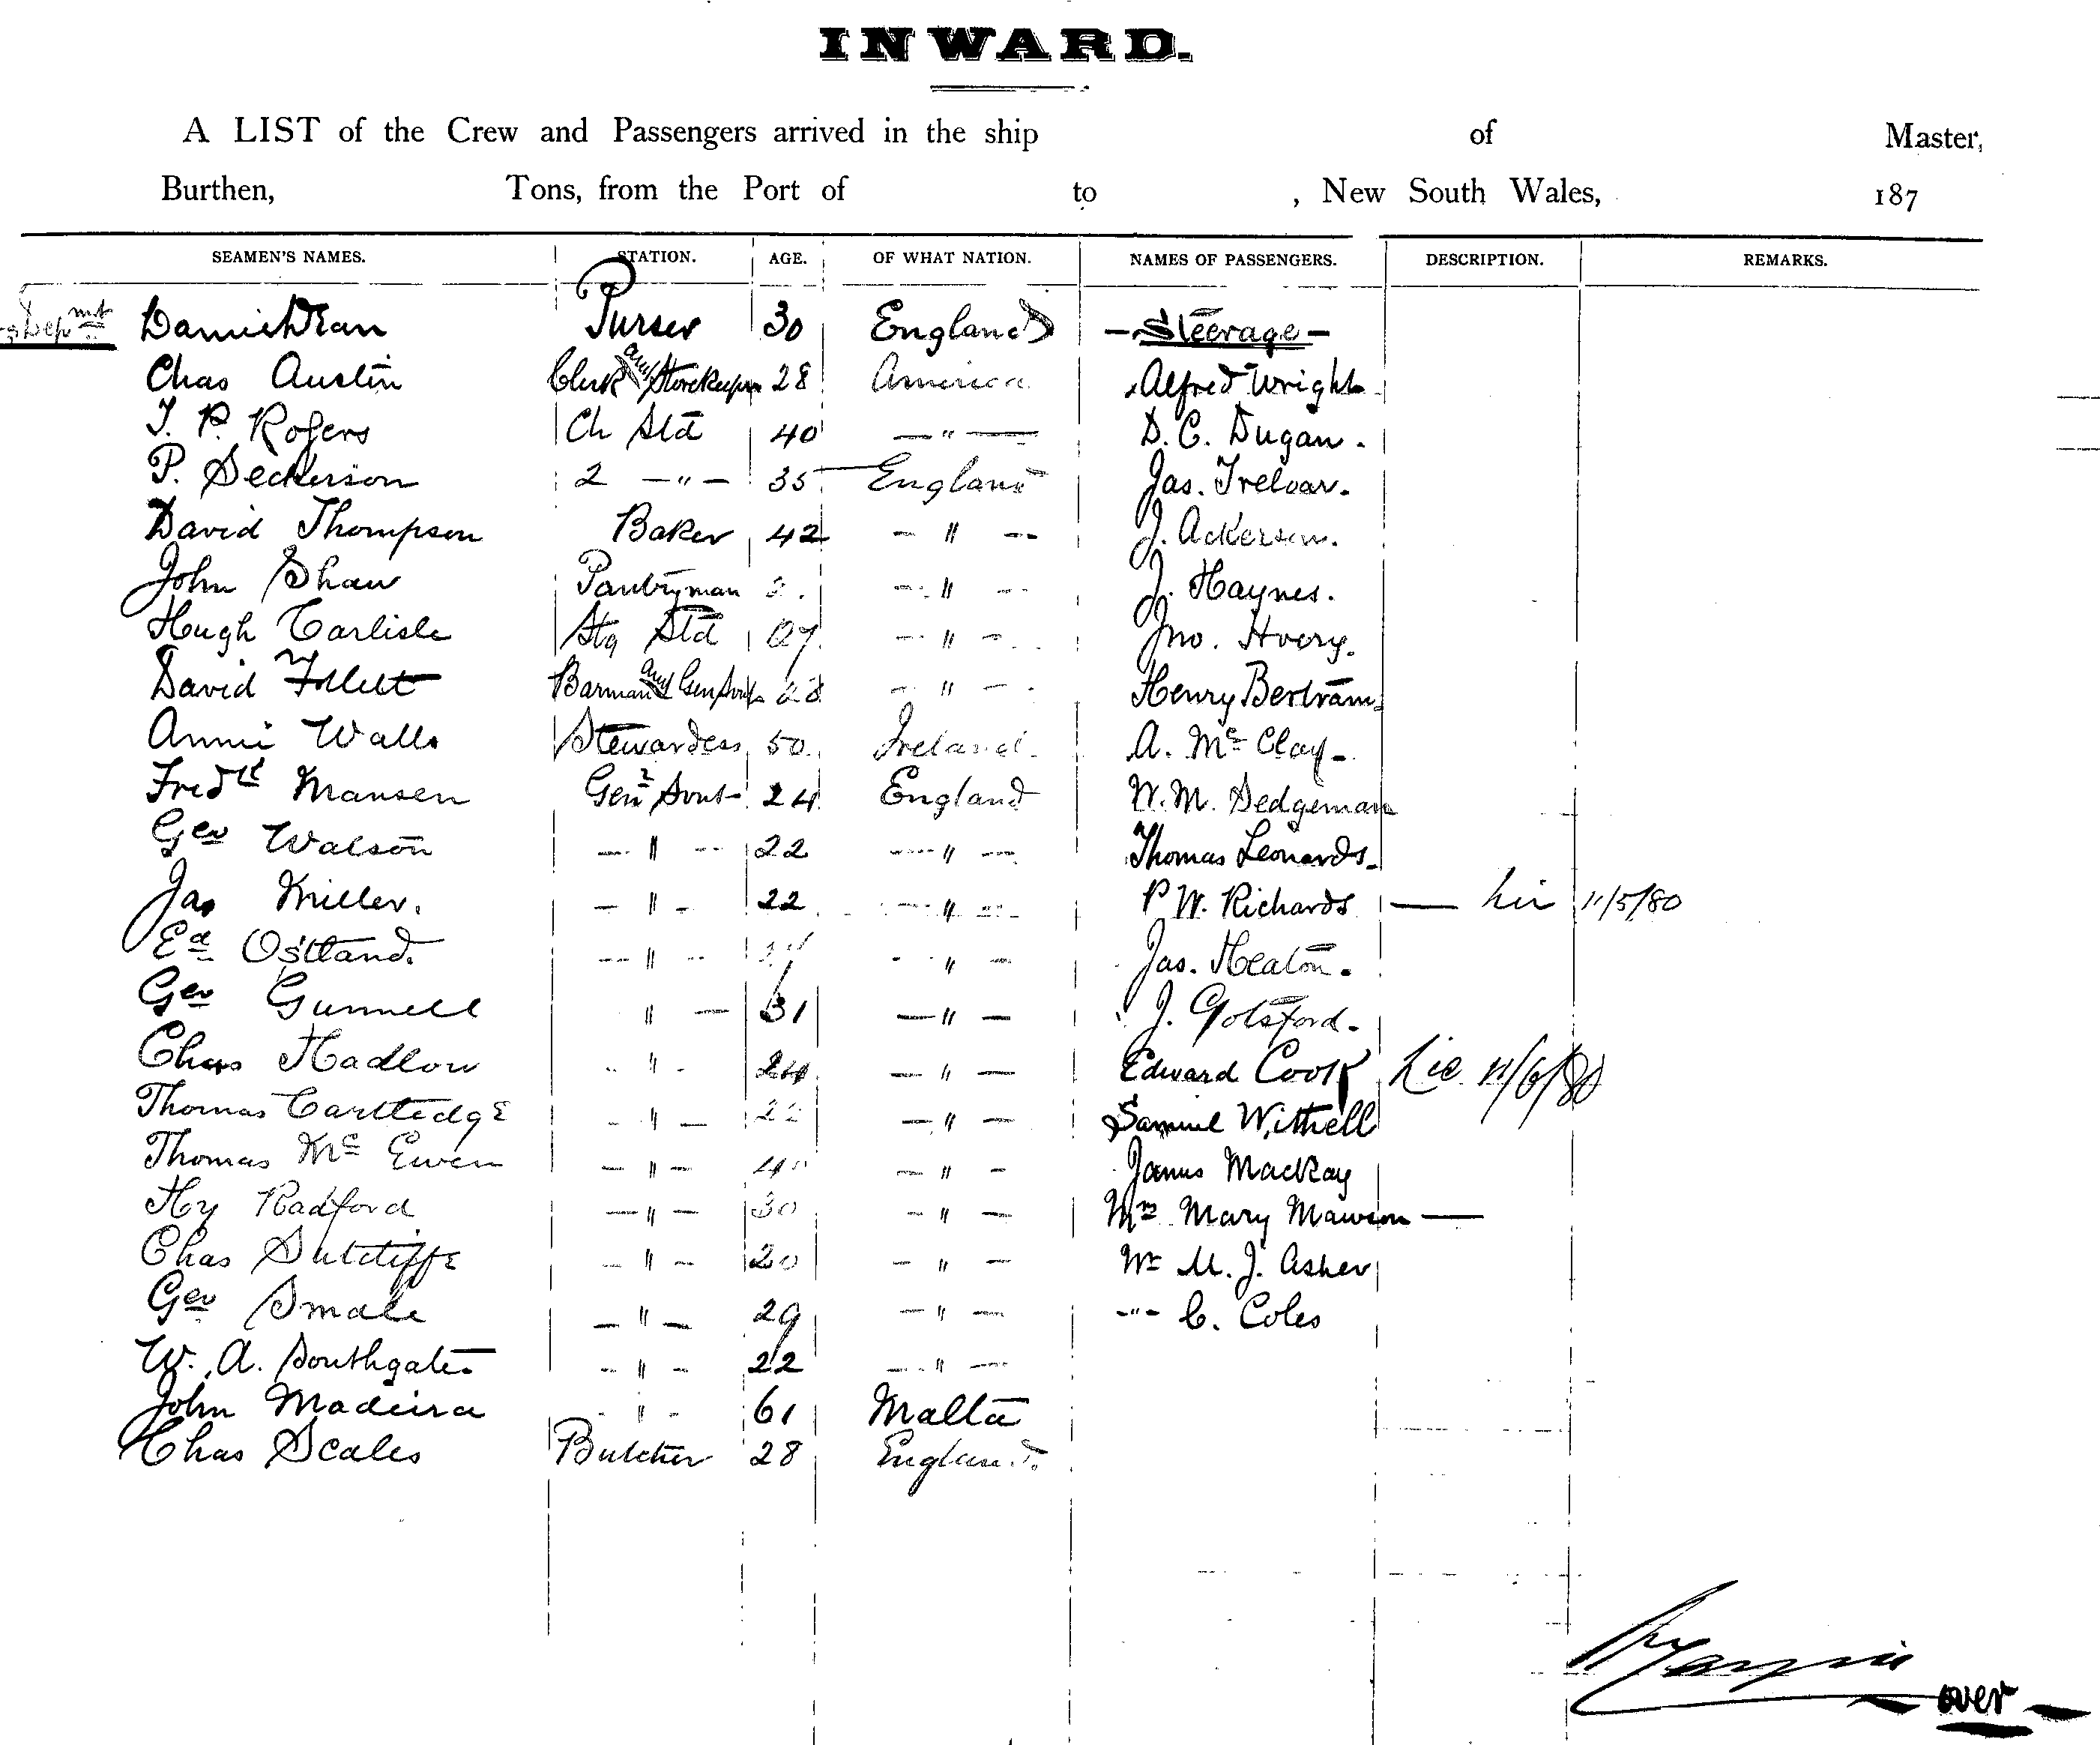 INWARD.
A LIST of the Crew and Passengers arrived in the ship of Master,
Burthen, Tons, from the Port of to , New South Wales, 187
SEAMEN'S NAMES. STATION. AGE. OF WHAT NATION. NAMES OF PASSENGERS. DESCRIPTION. REMARKS.
Depmt Purser 30 England - Steerage -
Chas Austin Clerk and Storekeeper 28 America Alfred Wright
T. P. Rogers Ch Std 40 - " - D. C. Dugan.
P. Seckerson 2 - " - 35 England Jas. Treloar.
David Thompson Baker 42 - " - J. Ackerson.
John Shaw Pantryman - " - J. Haynes.
Hugh Carlisle Stg Std 27 - " - Jno. Hoery.
David Barman and Gen Servt 28 - " - Henry Bertram.
Annie Walls Stewardess 50 Ireland A. Mc Clay -
Fredk Mansen Genl Servt 24 England W. M. Sedgeman
Geo Watson - " - 22 - " - Thomas Leonards.
Jas Miller. - " - 22 - " - P W. Richards - 11/5/80
Ed Ostland. - " - - " - Jas. Heaton.
Geo Gunnell " - 31 - " - J. Gotsford.
Chas Hadlow " - 24 - " - Edward Cook Lic 11/6/80
Thomas Carttedge - " - 22 - " - Samuel Withell
Thomas Mc Ewen - " - 40 - " - James Mackay
Hy Radford - " - 30 - " - Mrs Mary Mawson -
Chas Sutcliffe - " - 20 - " - Mr M. J. Asher
Geo Smale - " - 29 - " - - " - C. Coles
W. A. Southgate - " - 22 - " -
John Madeira " - 61 Malta
Chas Scales Butcher 28 England.
- over -